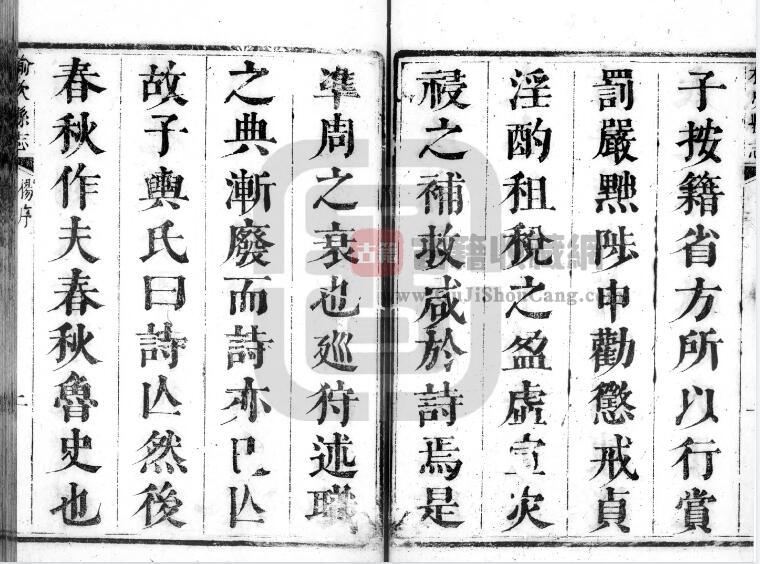 子按籍省方所以行賞
罰嚴黜陟申勸懲戒貞
淫酌租稅之盈虛宣灾
祲之補救咸於詩焉是
凖周之衰也廵狩述職
之典漸廢而詩亦已亾
故子輿氏曰詩亾然後
春秋作夫春秋魯史也
榆次縣志 楊序
古籍
古籍收藏網
www.GuJiShouCang.com